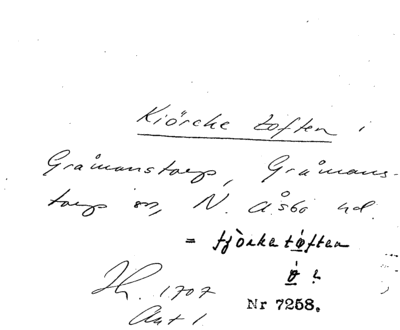 Kiörcke toften i
Gråmanstorp, Gråmans-
torp sn, N. Åsbo hd.
= tjörketoften
ö ?
Jh. 1707
Akt 1
Nr 7258.